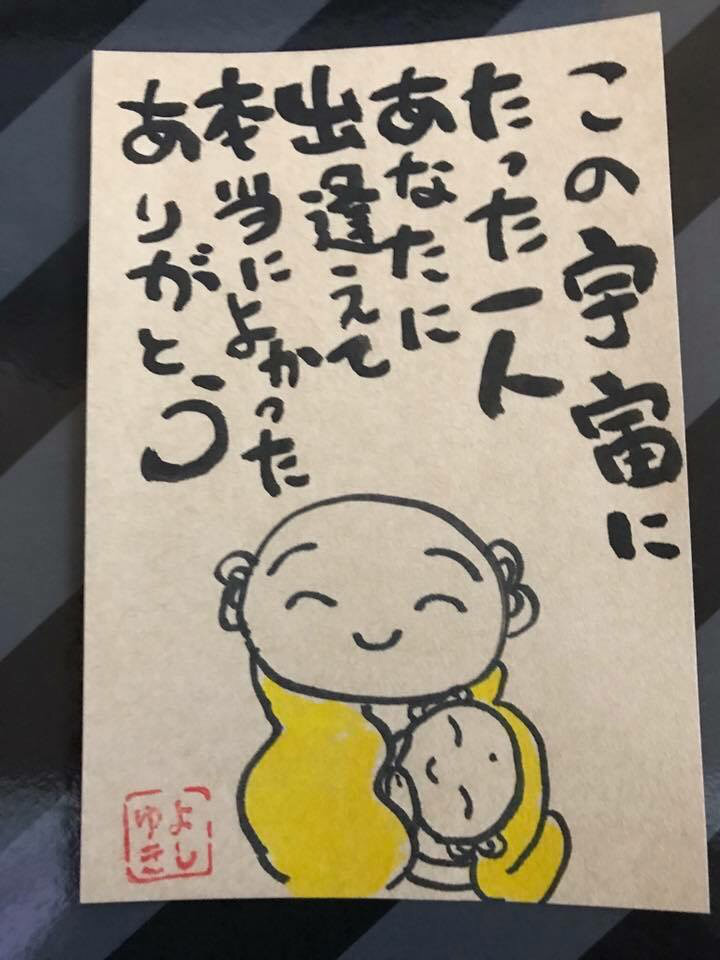 この宇宙に
たった一人
あなたに
出逢えて
本当によかった
ありがとう
よし
ゆき